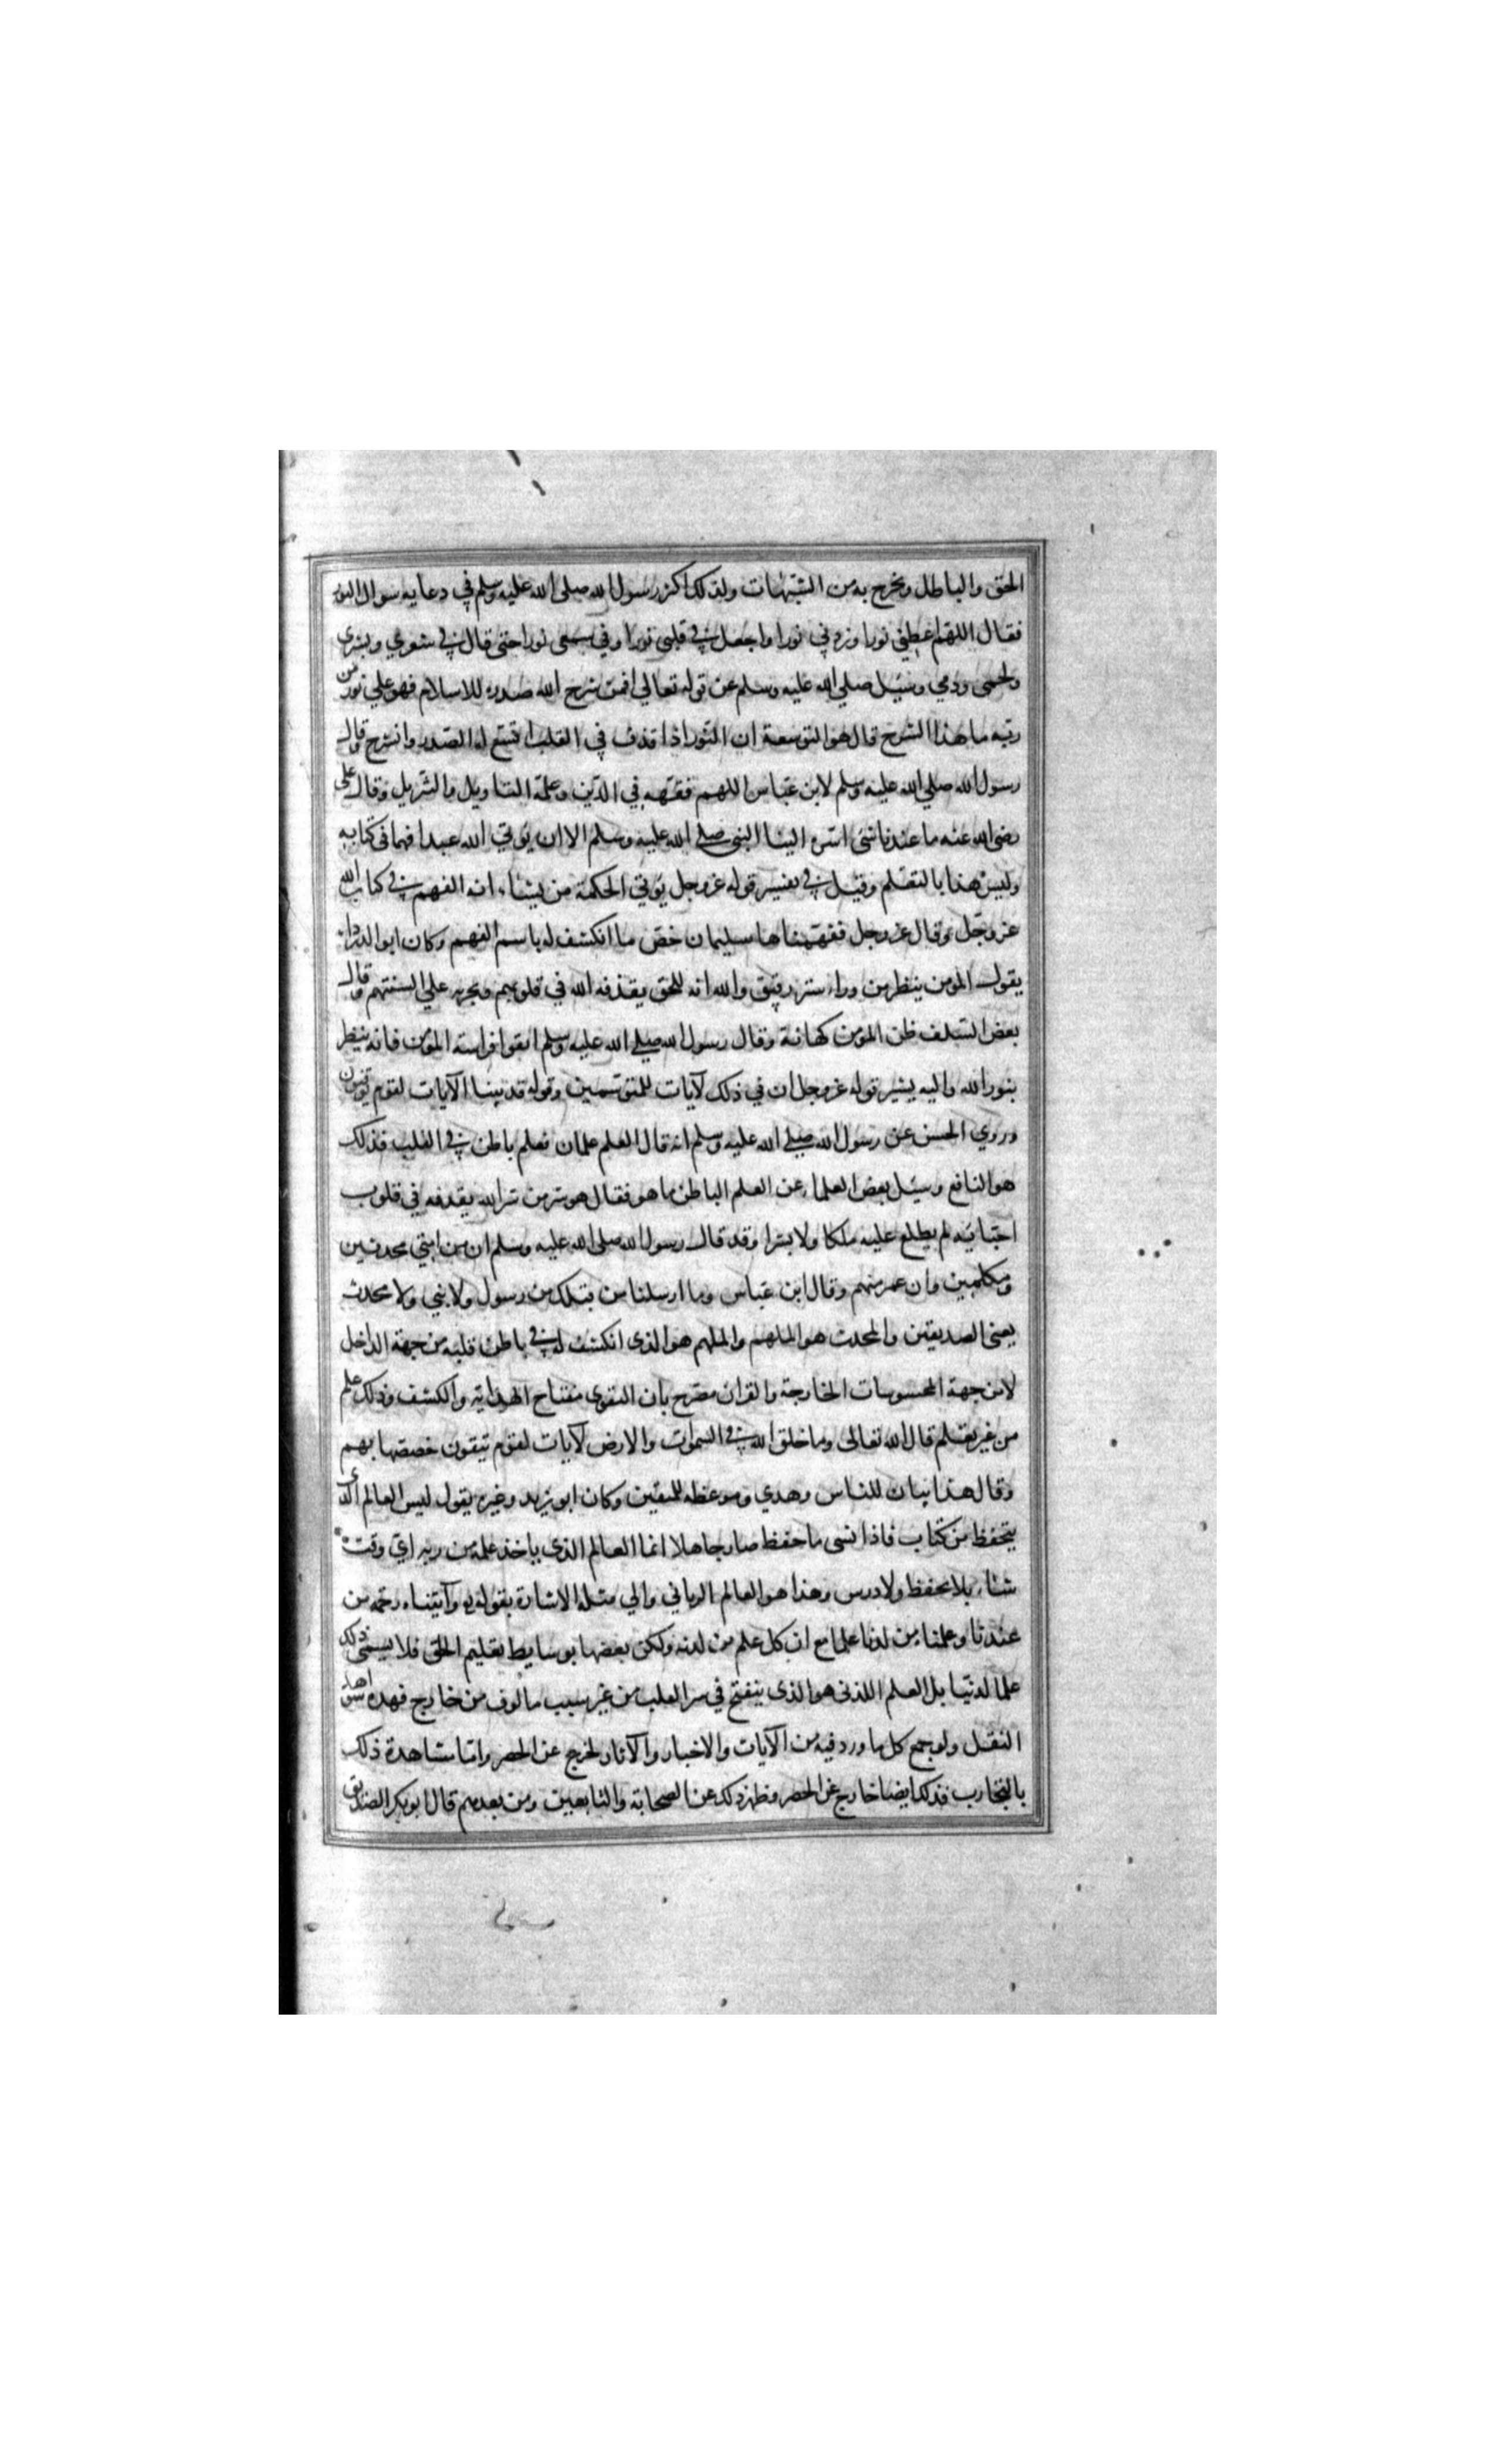 الحق والباطل ويخرج به من الشبهات ولذلك اكثر رسول الله صلى الله عليه وسلم في دعايه سوال النور
فقال اللهم اعطني نورا وزدني نورا واجعل في قلبي نورا وفي سمعي نورا حتى قال في شعري وبشري
ولحمي ودمي وسئل صلي الله عليه وسلم عن قوله تعالي افمن شرح الله صدره للاسلام فهو علي نور من
ربه ما هذا الشرح قال هو التوسعة ان النور اذا قذف في القلب اتسع له الصدر وانشرح وقال
رسول الله صلي الله عليه وسلم لابن عباس اللهم فقهه في الدين وعلمه التاويل والتنزيل وقال على
رضى الله عنه ما عندنا شئ اسره الينا النبي صلى الله عليه وسلم الا ان يوتي الله عبدا فهما في كتابه
وليس هذا بالتعلم وقيل في تفسير قوله عز وجل يوتي الحكمة من يشاء انه الفهم في كتاب الله
عز وجل وقال عز وجل ففهمناها سليمان خص ما انكشف له باسم الفهم وكان ابو الدرداء
يقول المومن ينظر من وراء ستر رقيق والله انه للحق يقذفه الله في قلوبهم ويجريه علي السنتهم وقال
بعض السلف ظن المؤمن كهانة وقال رسول الله صلى الله عليه وسلم اتقوا فراسة المؤمن فانه ينظر
بنور الله واليه يشير قوله عز وجل ان في ذلك لآيات للمتوسمين وقوله قد بينا الآيات لقوم يوقنون
وروي الحسن عن رسول الله صلى الله عليه وسلم انه قال العلم علمان فعلم باطن في القلب فذلك
هو النافع وسئل بعض العلماء عن العلم الباطن ما هو فقال هو سر من سر الله يقذفه في قلوب
احبائه لم يطلع عليه ملكا ولا بشرا وقد قال رسول الله صلى الله عليه وسلم ان من امتي محدثين
ومكلمين وان عمر منهم وقال ابن عباس وما ارسلنا من قبلك من رسول ولا نبي ولا محدث
يعنى الصديقين والمحدث هو الملهم والملهم هو الذى انكشف له في باطن قلبه من جهة الداخل
لا من جهة المحسوسات الخارجة والقران مصرح بان التقوى مفتاح الهداية والكشف وذلك علم
من غير تعلم قال الله تعالى وما خلق الله في السموات والارض لآيات لقوم يتقون خصصها بهم
وقال هذا بيان للناس وهدي وموعظه للمتقين وكان ابو يزيد وغيره يقول ليس العالم الذى
يتحفظ من كتاب فاذا نسى ما حفظ صار جاهلا انما العالم الذى ياخذ علمه من ربه اي وقت
شاء بلا تحفظ ولا درس وهذا هو العالم الرباني والي مثله الاشارة بقوله وآتيناه رحمه من
عندنا وعلمناه من لدنا علما مع ان كل علم من لدنه ولكن بعضها بوسايط تعليم الخلق فلا يسمى ذلك
علما لدنيا بل العلم اللدنى هو الذى ينفتح في سر القلب من غير سبب مالوف من خارج فهذه شواهد
النقل ولو جمع كل ما ورد فيه من الآيات والاخبار والآثار لخرج عن الحصر واما مشاهدة ذلك
بالتجارب فذلك ايضا خارج عن الحصر وظهر ذلك عن الصحابة والتابعين ومن بعدهم قال ابو بكر الصديق